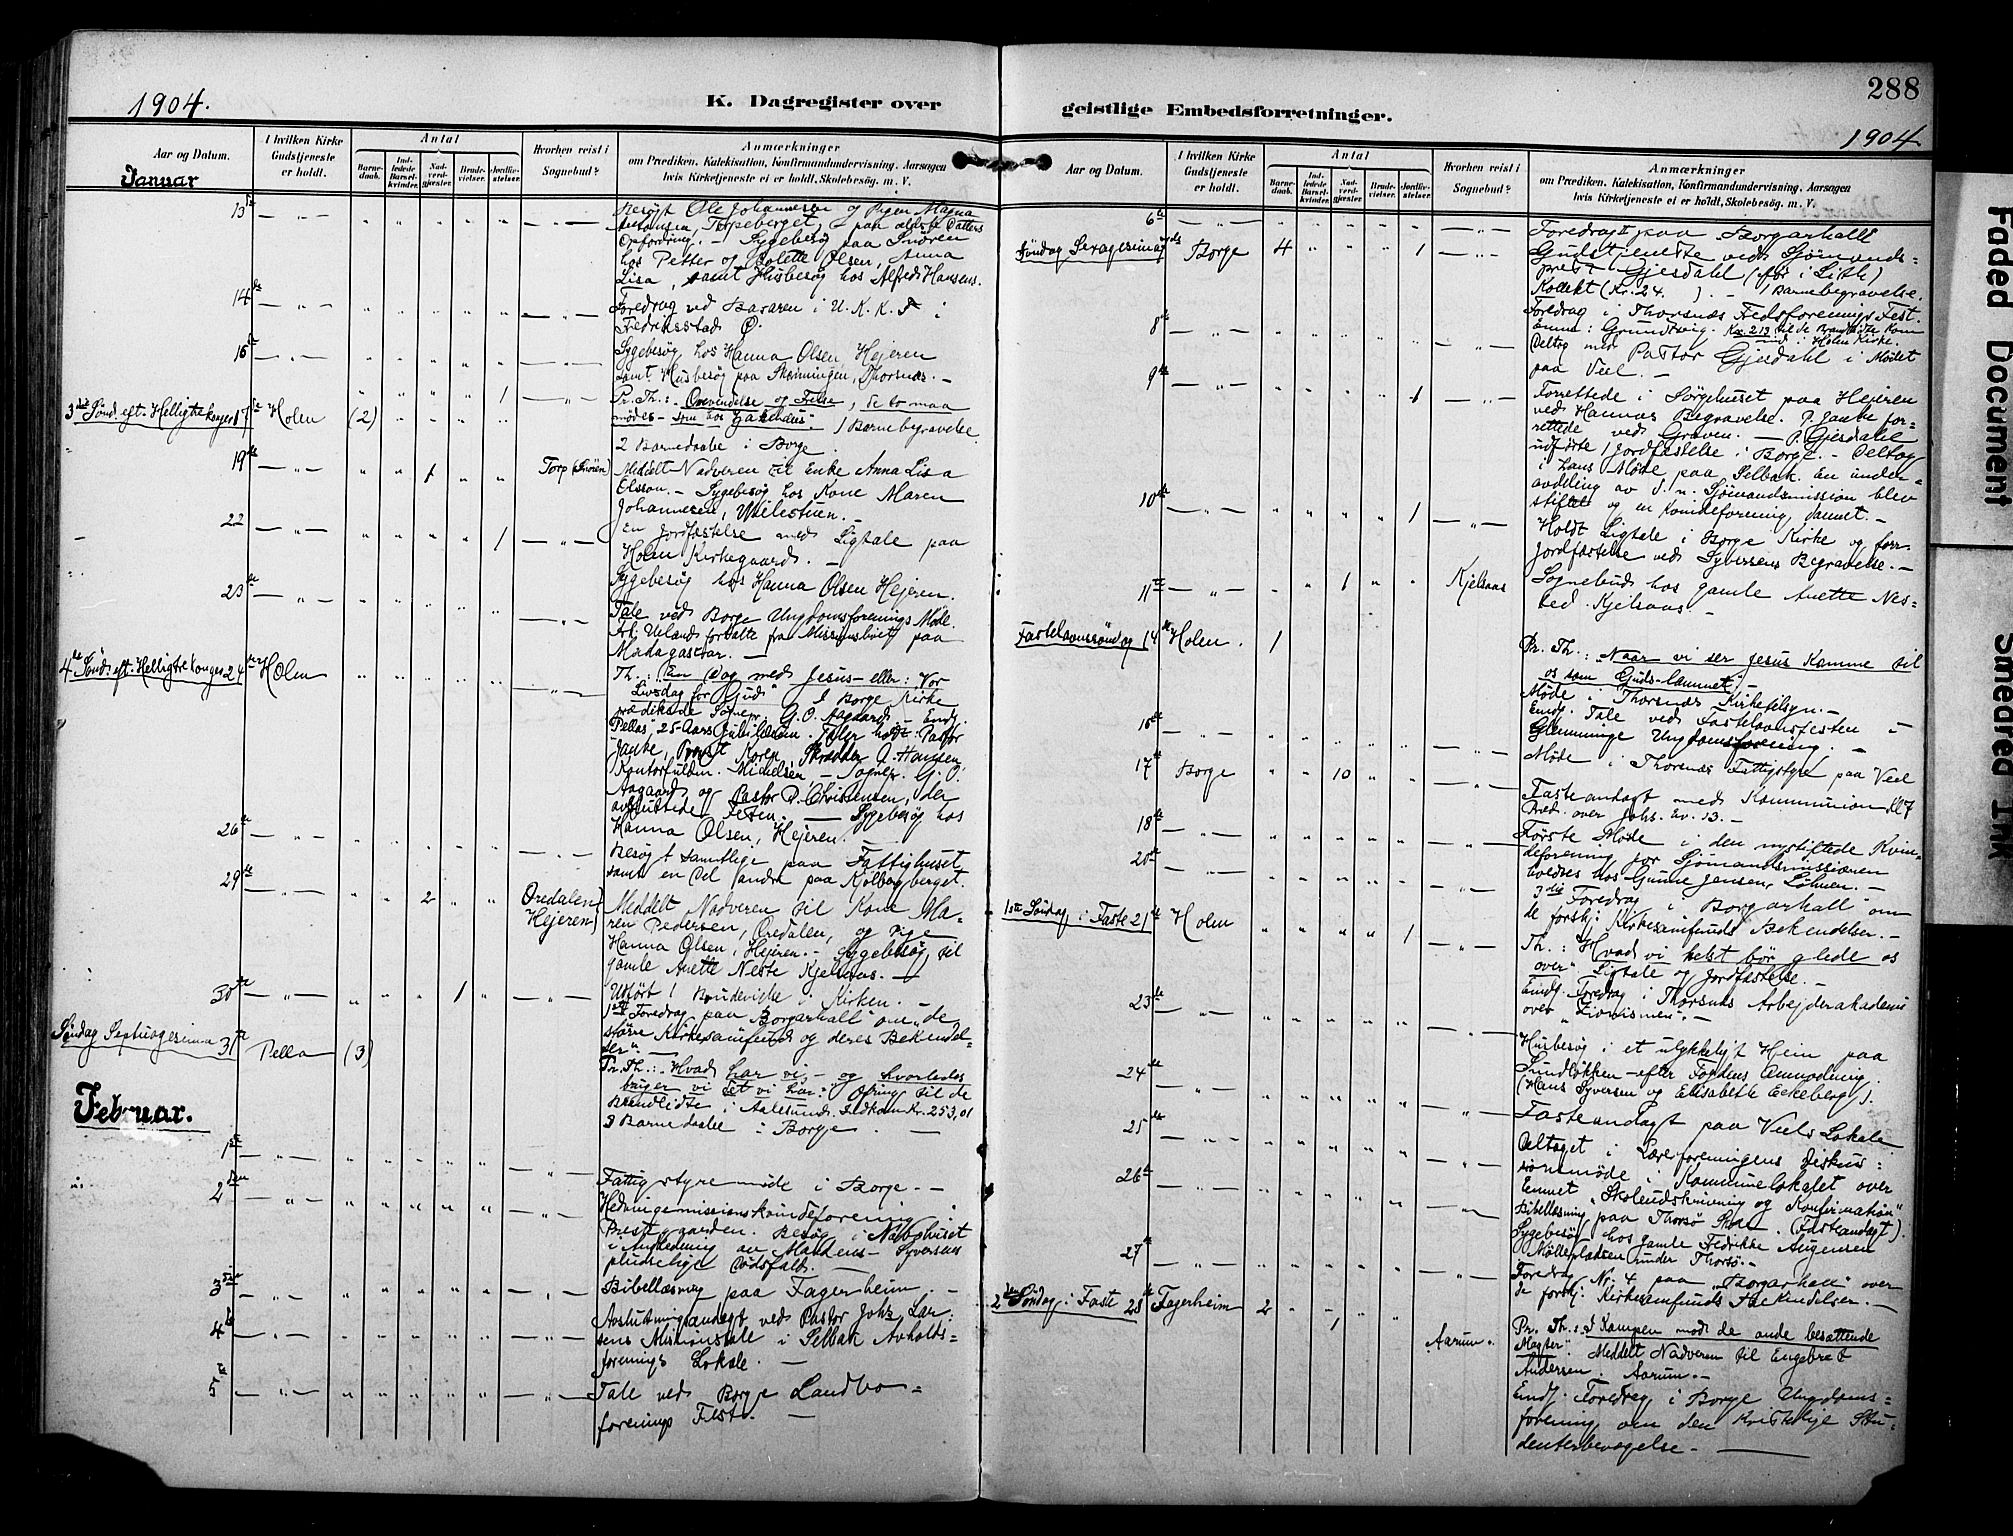 288
1904.
K. Dagregister over
geistlige Embedsforretninger.
1904
Aar og Datum.
I hvilken Kirke Gudstjeneste er holdt.
Antal
Barnedaab.
Indledede Barselkvinder.
Nadverdgjester.
Brudevielser.
Jordfæstelser.
Hvorhen reist i Sognebud?
Anmærkninger
om Prædiken, Katekisation, Konfirmandundervisning, Aarsagen
hvis Kirketjeneste ei er holdt, Skolebesøg. m. V.
Januar
13de
Besøgt Ole Johannesen og Pigen Magna
Torpeberget, paa ældste Datters
Opfordring. – Sygebesøg paa Snören
hos Petter og Bolette Olsen, Anna
Lisa, samt Husbesøg hos Alfred Hansens.
14de
Foredrag ved Basaren i U. K. K. F i
Fredriksstad Ø.
16de
Sygebesøg hos Hanna Olsen Hejeren
samt Husbesøg paa Thorsnæs. –
3die Sønd. eft. Helligtrekonger 17de Holen (2) 1
Pr. Th.: Omvendelse og Frelse, de to maa
mødes – som hos Zakæus. 1 Barnebegravelse.
2 Barnedaabe i Borge.
19de 1 Torp (Snören)
Meddelt Nadveren til Enke Anna Lisa
Olsson. – Sygebesøg hos Kone Maren
Johannesen,
22 1
En Jordfæstelse med Ligtale paa
Holen Kirkegaard. –
23de
Sygebesøg hos Hanna Olsen Hejeren.
Tale ved Borge Ungdomsforenings Møde.
fortalte fra Missionslivet paa
Madagaskar. –
4de Sønd. eft. Helligtrekonger 24de Holen
Th.: En Dag med Jesus – eller: Vor
Livsdag for Gud" I Borge Kirke
prædikede Sognepr. G. O. Aagaard. – Emf.
Pellas 25-Aars Jubilæum. Taler holdt: Pastor
Janke, Provst Koren, Skrædder J. Hansen
Kontorfuldm. Mikelsen – Sognepr. G. O.
Aagaard og Pastor P. Christensen, der
avsluttede Festen. – Sygebesøg hos
Hanna Olsen, Hejeren. –
26de
Besøgt samtlige paa Fattighuset
samt en Del andre paa Kjölbergberget.
29de 2 Oredalen Hejeren
Meddelt Nadveren til Kone Ma-
ren Pedersen, Oredalen, og Pige
Hanna Olsen, Hejeren. – Sygebesøg til
gamle Anette Neste Kjelsaas. –
30te 1
Udført 1 Brudevielse i Kirken. –
1ste Foredrag paa "Borgarhall" om "de
større Kirkesamfund og deres Bekendel-
ser". –
Søndag Septuagesima 31te Pella (3)
Pr. Th.: Hvad har vi, – og hvorledes
bruger vi det vi har: Ofring til de
Brandlidte i Aalesund. Indkom Kr. 253,01
3 Barnedaabe i Borge. –
Februar.
1ste
Fattigstyremøde i Borge. –
2den
Hedningemissionskvindeforening i
Prestegaarden. Besøg i Nabohuset
i Anledning av Madens Syversens
pludselige Dødsfald. –
3die
Bibellæsning paa Fagerheim –
4de
Avslutningsandagt ved Pastor Johs Lar-
sens Missionstale i Selbak Avholds-
forenings Lokale. –
5te
Tale ved Borge Landbo-
forenings Fest. –
Aar og Datum.
I hvilken Kirke Gudstjeneste er holdt.
Antal
Barnedaab.
Indledede Barselkvinder.
Nadverdgjester.
Brudevielser.
Jordfæstelser.
Hvorhen reist i Sognebud?
Anmærkninger
om Prædiken, Katekisation, Konfirmandundervisning, Aarsagen
hvis Kirketjeneste ei er holdt, Skolebesøg. m. V.
6te
Foredrag II paa "Borgarhall
Søndag Sexagesima 7de Borge 4 1
Gudstjeneste ved Sjømands-
prest Gjesdahl (før i Lith)
Kollekt (Kr. 24. ). – 1 Barnebegravelse.
8de
Foredrag i Thorsnæs Fredsforenings Fest.
Emne: Grundtvig. Kr. 213 til de Brandlidte kom ind i Holen Kirke.
Deltog med Pastor Gjesdahl i Mødet
paa Veel. –
9de 1
Forrettede i Sørgehuset paa Hejeren
ved Hannas Begravelse. P. Janke for-
rettede ved Graven. – P. Gjesdahl
udførte 1 Jordfæstelse i Borge. – Deltog
i hans Møde paa Selbak. En under-
avdeling av d. n. Sjømandsmission blev
stiftet og en Kvindeforening dannet. –
10de 1
Holdt Ligtale i Borge Kirke og forr.
Jordfæstelse ved Syversens Begravelse. –
11te 1 Kjelsaas
Sognebud hos gamle Anette Nes-
ted. Kjelsaas. –
Fastelavnssøndag 14de Holen. 1
Pr. Th.: Naar vi ser Jesus komme til
os som Guds-lammet –
Møde i Thorsnæs Kirketilsyn. –
Emf. Tale ved Fastelavnsfesten
Glemminge Ungdomsforening. –
16de
Møde i Thorsnæs Fattigstyre paa Veel
17de Borge 10
Fasteandagt med Kommunion Kl 7
Præd. over Johs. Ev. 13. –
18de
Første Møde i den nystiftede Kvin-
deforening for Sjømandsmissionen
holdtes hos Gunne Jensen, Løknen. –
20de
3die Foredrag i "Borgarhall" om
de forskj. Kirkesamfunds Bekendelser. –
1ste Søndag i Faste 21de Holen 1
Th.: Hvad vi helst bør glæde os
over" Ligtale og Jordfæstelse. –
Emf. Foredrag i Thorsnæs Arbejderakademi
over "Zionismen". –
23de
Husbesøg i et ulykkeligt Hjem paa
Sundløkken – efter Fogdens Anmodning.
(Hans Syversen og Elisabeth Eckeberg).
24de
Fasteandagt paa Veels Lokale
25de
Deltaget i Lærerforeningens Diskus-
sionsmøde i Kommunelokalet over
Emnet "Skoleudskrivning og Konfirmation"
26de
Bibellæsning paa Thorsø Skole. (Fasteandagt).
Sygebesøg hos gamle Fredrikke Augensen
Mølleplassen under Thorsø. –
27de
Foredrag Nr. 4 paa "Borgarhall" over
de forskj. Kirkesamfunds Bekendelser. –
2den Søndag i Faste 28de Fagerheim 2 1 Aarum.
Pr. Th.: I Kampen mod de onde besættende
Magter". Meddelt Nadveren til Engebret
Andersen Aarum. –
Emf. Foredrag i Borge Ungdoms-
forening om den kristelige Stu-
denterbevægelse. –
Faded Document
Smeared Ink